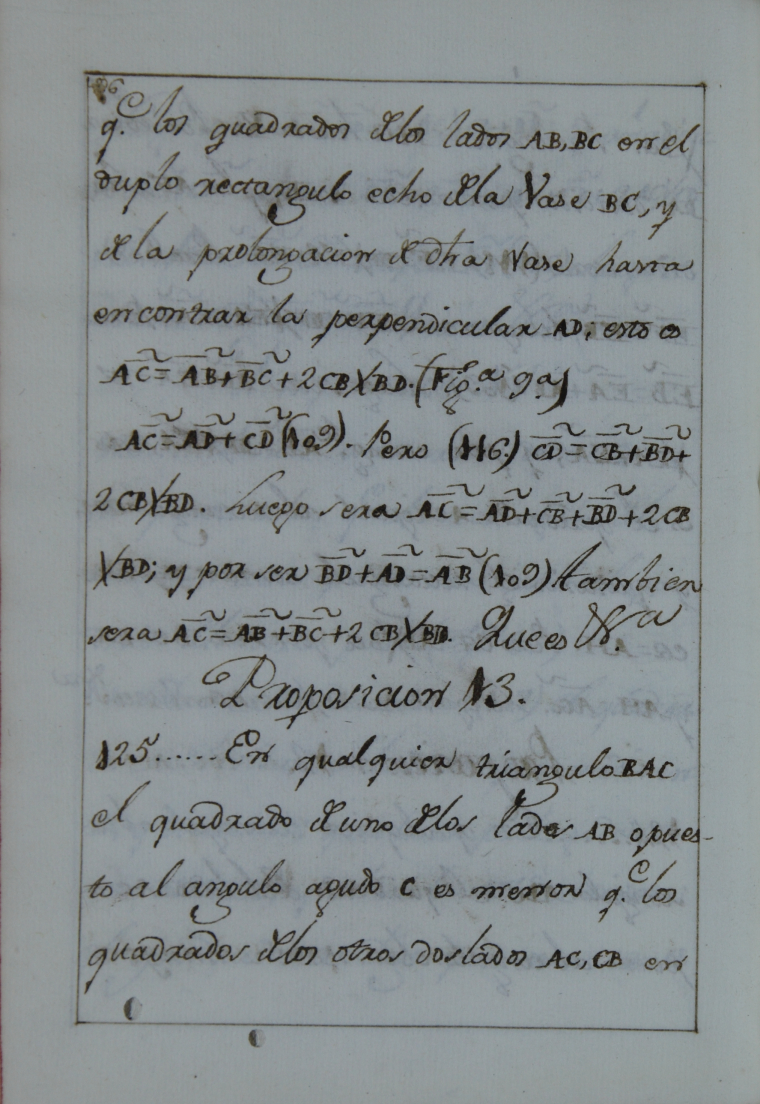 96
q.e los quadrados de los lados AB, BC en el
duplo rectangulo echo de la Vase BC, y
de la prolongacion de dha Vase hasta
encontrar la perpendicular AD; esto es
AC̃ = AB̃ + BC̃ + 2 CB X BD. (Fig.a 9.a)
AC̃ = AD̃ + CD̃ (109). Pero (116) CD̃ = CB̃ + BD̃ +
2 CB X BD. Luego sera AC̃ = AD̃ + CB̃ + BD̃ + 2 CB
X BD; y por ser BD̃ + AD̃ = AB̃ (109) tambien
sera AC̃ = AB̃ + BC̃ + 2 CB X BD. Que es &.a
Proposicion 13.
125...... En qualquier triangulo BAC
el quadrado de uno de los lados AB opues-
to al angulo agudo C es menor q.e los
quadrados de los otros dos lados AC, CB en